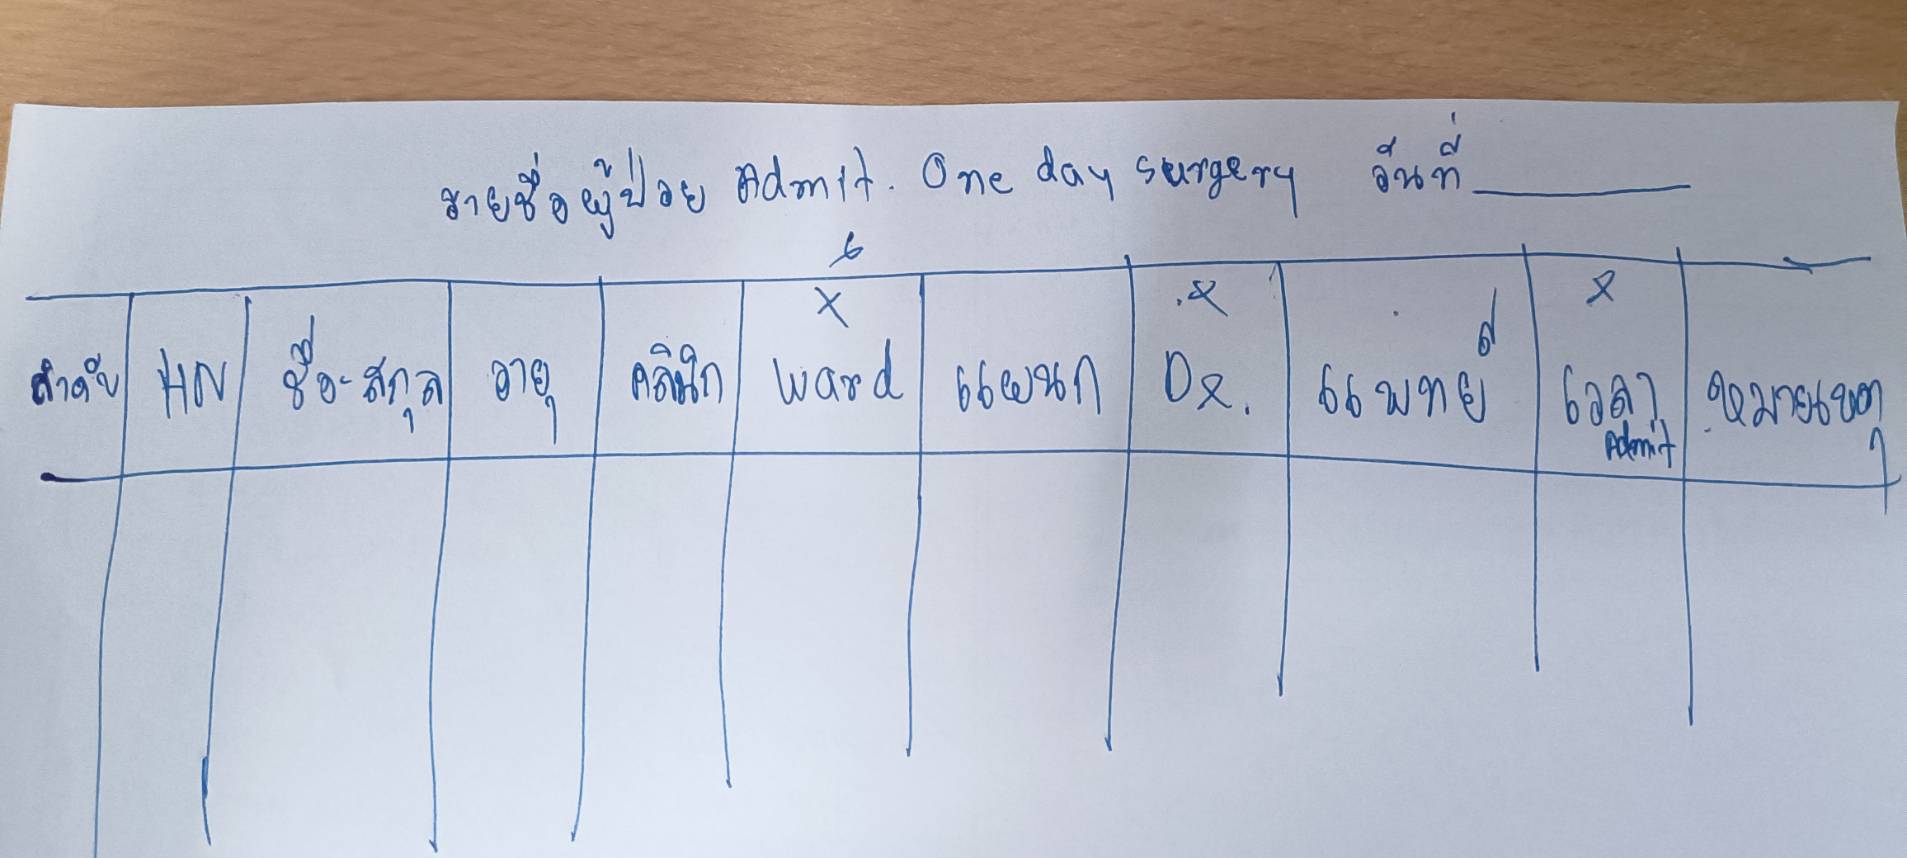 รายชื่อผู้ป่วย Admit. One day surgery วันที่
ลำดับ HN ชื่อ-สกุล อายุ คลินิก ward แผนก Dx. แพทย์ เวลา Admit หมายเหตุ